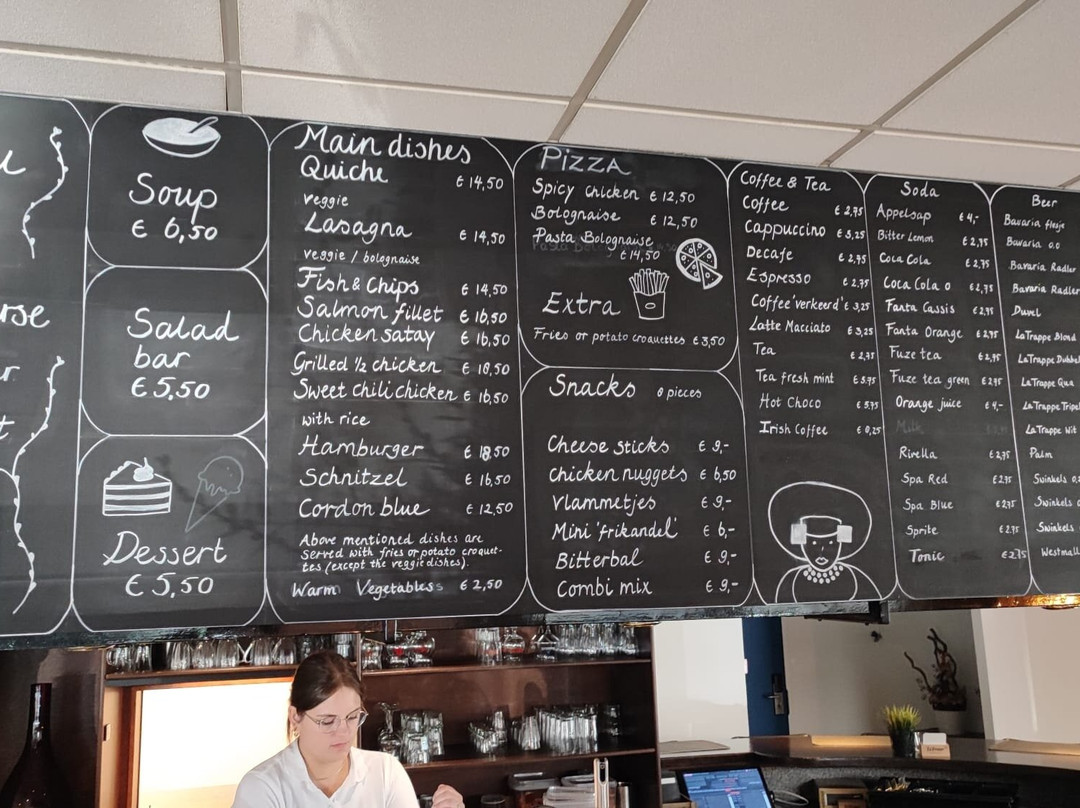 rse
Soup
€ 6,50
Salad
bar
€ 5,50
Dessert
€ 5,50
Main dishes
Quiche € 14,50
veggie
Lasagna € 14,50
veggie / bolognaise
Fish & Chips € 14,50
Salmon fillet € 16,50
Chicken satay € 16,50
Grilled ½ chicken € 18,50
Sweet chili chicken € 16,50
with rice
Hamburger € 18,50
Schnitzel € 16,50
Cordon blue € 12,50
Above mentioned dishes are
served with fries or potato croquet-
tes (except the veggie dishes).
Warm Vegetables € 2,50
Pizza
Spicy chicken € 12,50
Bolognaise € 12,50
Pasta Bolognaise
€ 14,50
Extra
Fries or potato croquettes € 3,50
Snacks 8 pieces
Cheese sticks € 9,-
Chicken nuggets € 6,50
Vlammetjes € 9,-
Mini 'frikandel' € 6,-
Bitterbal € 9,-
Combi mix € 9,-
Coffee & Tea
Coffee € 2,75
Cappuccino € 3,25
Decafe € 2,75
Espresso € 2,75
Coffee 'verkeerd' € 3,25
Latte Macciato € 3,25
Tea € 2,75
Tea fresh mint € 3,75
Hot Choco € 3,75
Irish Coffee € 8,25
Soda
Appelsap € 4,-
Bitter Lemon € 2,75
Coca Cola € 2,75
Coca Cola 0 € 2,75
Fanta Cassis € 2,75
Fanta Orange € 2,75
Fuze tea € 2,95
Fuze tea green € 2,95
Orange juice € 4,-
Milk
Rivella € 2,75
Spa Red € 2,75
Spa Blue € 2,75
Sprite € 2,75
Tonic € 2,75
Beer
Bavaria flesje
Bavaria 0.0
Bavaria Radler
Bavaria Radler
Duvel
LaTrappe Blond
LaTrappe Dubbel
LaTrappe Qua
LaTrappe Tripel
LaTrappe Wit
Palm
Swinkels 0,
Swinkels
Swinkels
Westmall